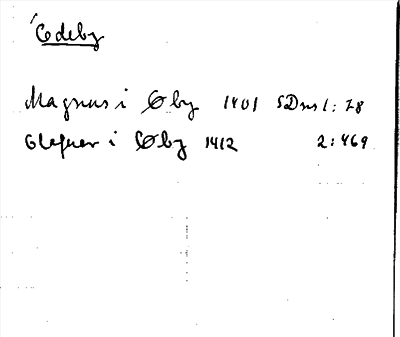 Edeby
Magnus i Øby 1401 SDns 1:28
Olefuer i Øby 1412 2:469